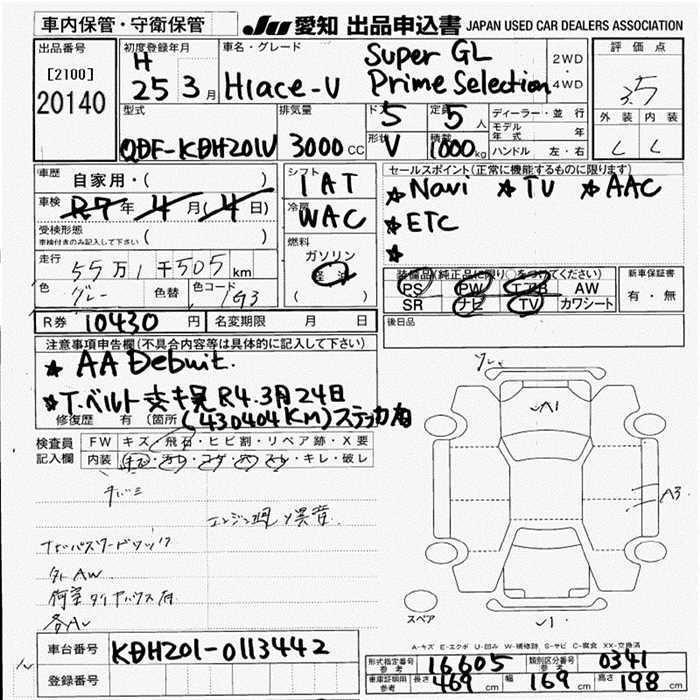 車内保管・守衛保管 JU 愛知 出品申込書 JAPAN USED CAR DEALERS ASSOCIATION
出品番号 初度登録年月 車名・グレード 評価点
[2100] H Super GL 2WD
20140 25 3月 Hiace-V Prime Selection ・4WD 3.5
型式 排気量 ドア 5 定員 5人 ディーラー・並行 外装 内装
モデル年式 年
QDF-KDH201V 3000cc 形状 V 積載 1000kg ハンドル 左・右 C C
車歴 自家用・( ) シフト セールスポイント(正常に機能するものに限ります)
IAT ★Navi ★TV ★AAC
車検 R7年 4月(4日) 冷房
WAC ★ETC
受検形態 ( )
車検付きのみ記入して下さい 燃料 ★
走行 55万1千505km ガソリン
装備品(純正品に限り○をつけてください) 新車保証書
色 グレー 色替 色コード 1G3 ( ) PS PW エアB AW 有・無
SR ナビ TV カワシート
R券 10430円 名変期限 月 日 後日品
注意事項申告欄(不具合内容等は具体的に記入して下さい)
★AA Debuit.
★T.ベルト交換 R4.3月24日
修復歴 有(箇所 (430404KM)ステッカ有
検査員記入欄 FW キズ・飛石・ヒビ割・リペア跡・X要
内装 キズ・汚れ・コゲ・穴・スレ・キレ・破レ
グレー
A1
A3
エンジン廻り異音
ナビパスワードロック
外AW
スペア
1
A-キズ E-エクボ U-凹み W-補修跡 S-サビ C-腐食 XX-交換済
車台番号 KDH201-0113442
登録番号
形式指定番号参考 16605 類別区分番号参考 0341
車庫証明用参考 長さ 469cm 幅 169cm 高さ 198cm